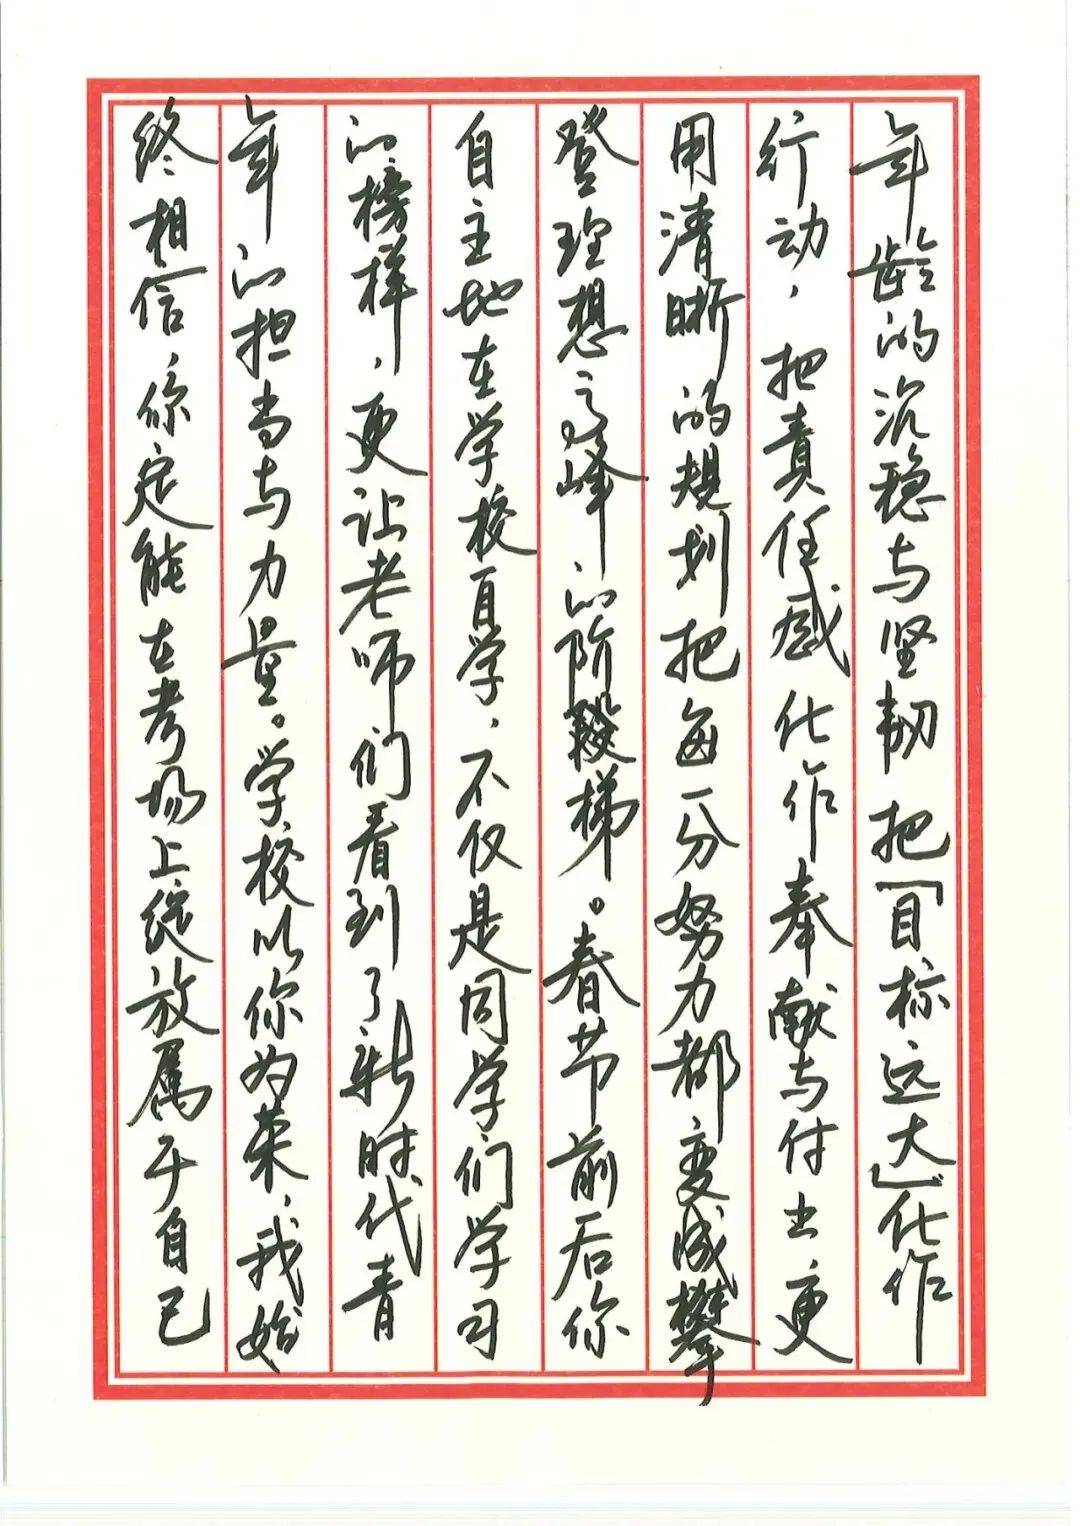 年龄的沉稳与坚韧把「目标远大」化作
行动，把责任感化作奉献与付出更
用清晰的规划把每一分努力都变成攀
登理想高峰的阶段梯。春节前后你
自主地在学校自学，不仅是同学们学习
的榜样，更让老师们看到了新时代青
年的担当与力量。学校以你为荣，我始
终相信，你定能在考场上绽放属于自己